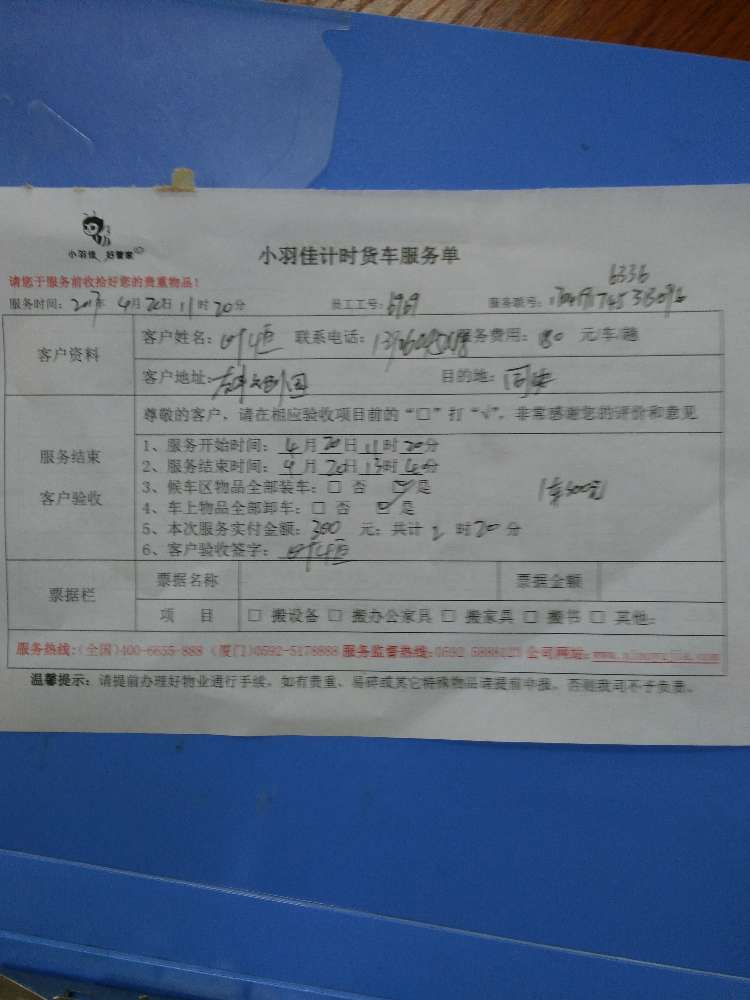 小羽佳 好管家
小羽佳计时货车服务单
请您于服务前收拾好您的贵重物品!
6336
服务时间: 2017年 4月20日 11时20分 员工工号: 6969 服务联号:
客户资料
客户姓名: 联系电话: 服务费用: 180 元/车/趟
客户地址: 目的地: 同安
服务结束
客户验收
尊敬的客户,请在相应验收项目前的“□”打“√”,非常感谢您的评价和意见
1、服务开始时间: 4月20日11时20分
2、服务结束时间: 4月20日13时40分
3、候车区物品全部装车: □ 否 ☑是
4、车上物品全部卸车: □ 否 ☑是
5、本次服务实付金额: 300 元; 共计 2 时20分
6、客户验收签字:
1车300元
票据栏
票据名称 票据金额
项 目 □ 搬设备 □ 搬办公家具 □ 搬家具 □ 搬书 □ 其他:
服务热线:(全国)400-6655-888 (厦门)0592-5178888 服务监督热线: 公司网站:
温馨提示: 请提前办理好物业进行手续。如有贵重、易碎或其它特殊物品请提前申报。否则我司不予负责。